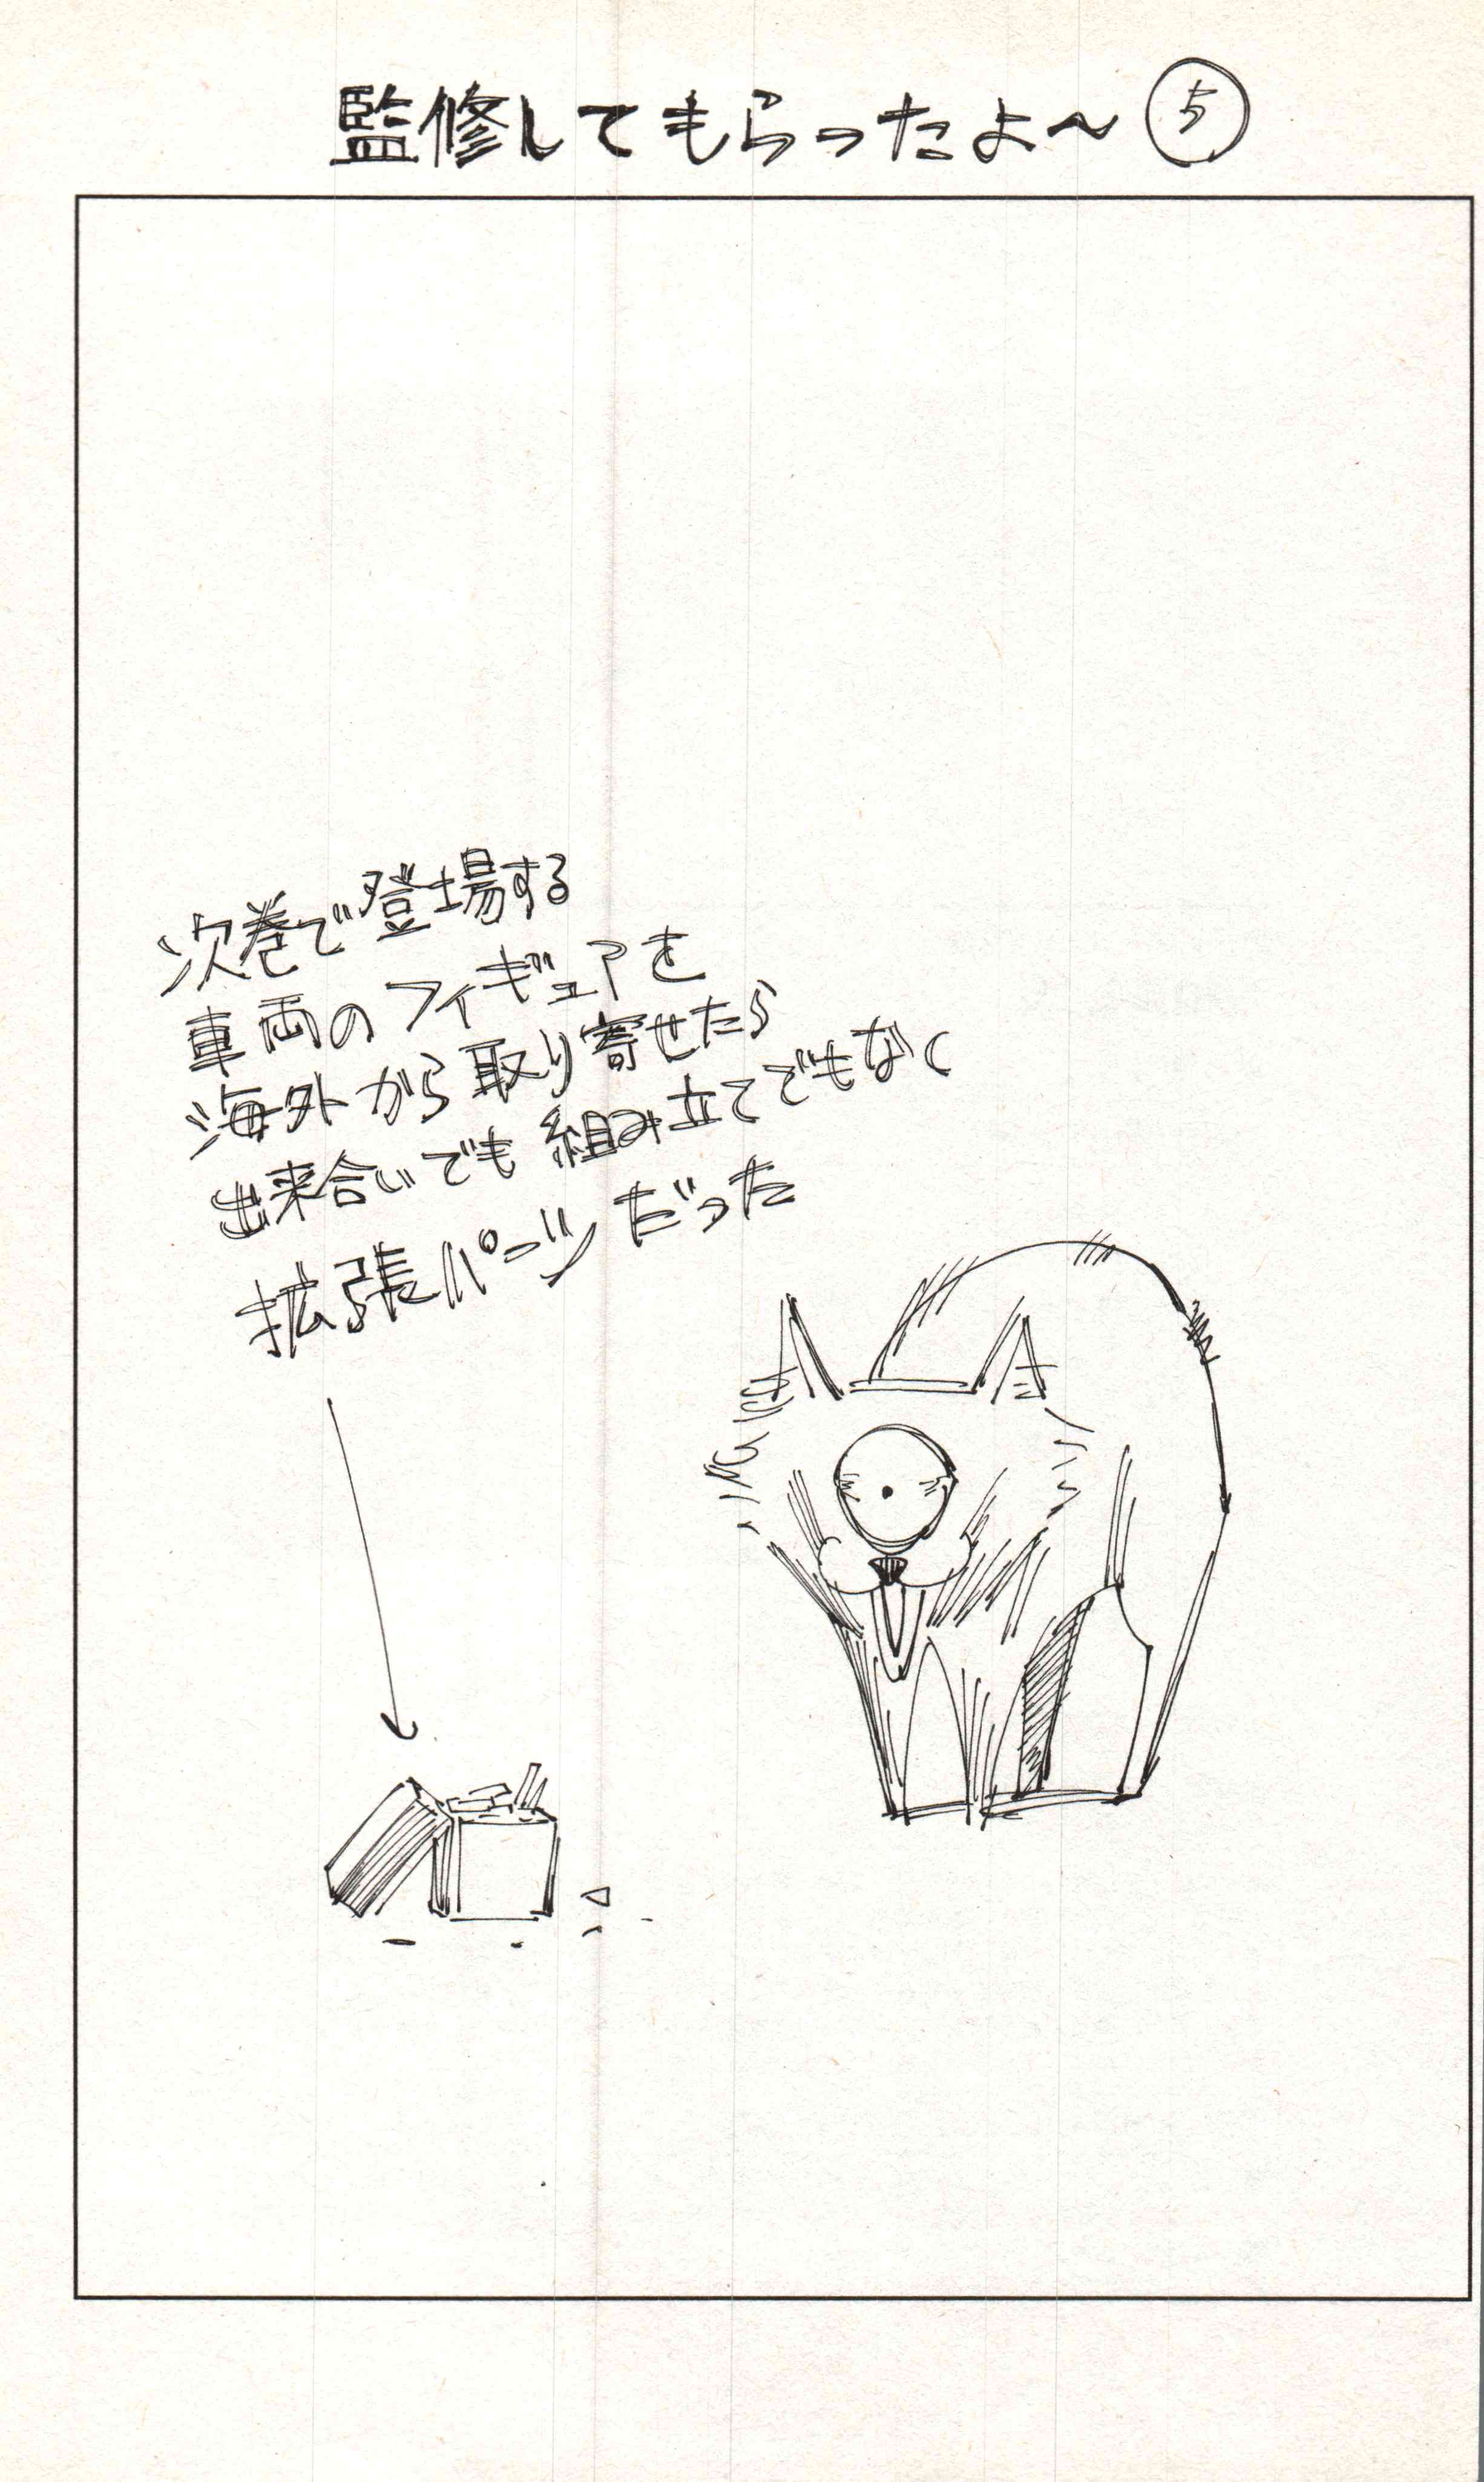 監修してもらったよ〜⑤
次巻で登場する
車両のフィギュアを
海外から取り寄せたら
出来合いでも組み立てでもなく
拡張パーツだった